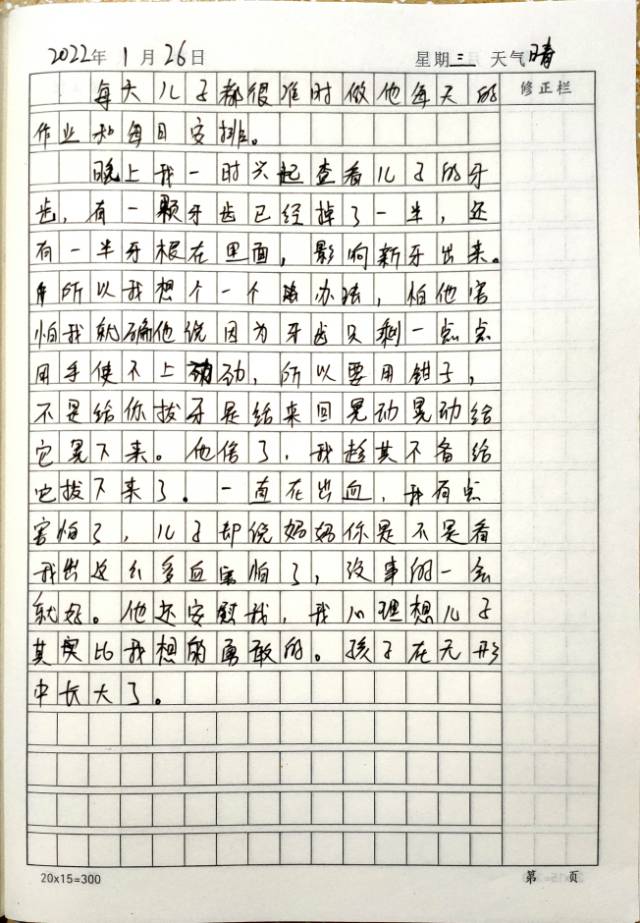 2022年 1月 26日 星期三 天气晴
修正栏
每天儿子都很准时做他每天的
作业和每日安排。
晚上我一时兴起查看儿子的牙
齿，有一颗牙齿已经掉了一半，还
有一半牙根在里面，影响新牙出来。
所以我想个一个办法，怕他害
怕我就确他说因为牙齿只剩一点点
用手使不上劲，所以要用钳子，
不是给你拔牙是给来回晃动晃动给
它晃下来。他信了，我趁其不备给
它拔下来了。一直在出血，我有点
害怕了，儿子却说妈妈你是不是看
我出这么多血害怕了，没事的一会
就好。他还安慰我，我心理想儿子
其实比我想的勇敢的。孩子在无形
中长大了。
20x15=300 第 页